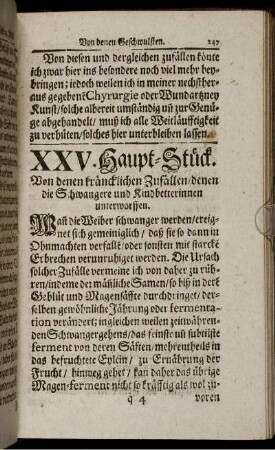 Von denen Geschwulsten. 247
Von diesen und dergleichen zufällen könte
ich zwar hier ins besondere noch viel mehr bey-
bringen; iedoch weilen ich in meiner nechster-
aus gegebenẽ Chyrurgie oder Wundartzney
Kunst/solche albereit umständig uñ zur Genü-
ge abgehandelt/ muß ich alle Weitläuffigkeit
zu verhüten/solches hier unterbleiben lassen.
XXV. Haupt-Stück.
Von denen kräncklichen Zufällen/denen
die Schwangere und Kindbetterinnen
unterworffen.
Wañ die Weiber schwanger werden/ereig-
net sich gemeiniglich / daß sie so dann in
Ohnmachten verfallẽ/oder sonsten mit starckẽ
Erbrechen verunruhiget werden. Die Ursach
solcher Zufälle vermeine ich von daher zu rüh-
ren/indeme der mäñliche Samen/so biß in dere
Geblüt und Magensäffte durchdringet/der-
selben gewöhnliche Jährung oder fermenta-
tion verändert; ingleichen weilen zeitwähren-
den Schwangergehens/das feinste uñ subtilste
ferment von deren Säften/mehrentheils in
das befruchtete Eylein/ zu Ernährung der
Frucht/ hinweg gehet/ kan daher das übrige
Magen-ferment nicht so kräftig als wol zu-
q 4 voren